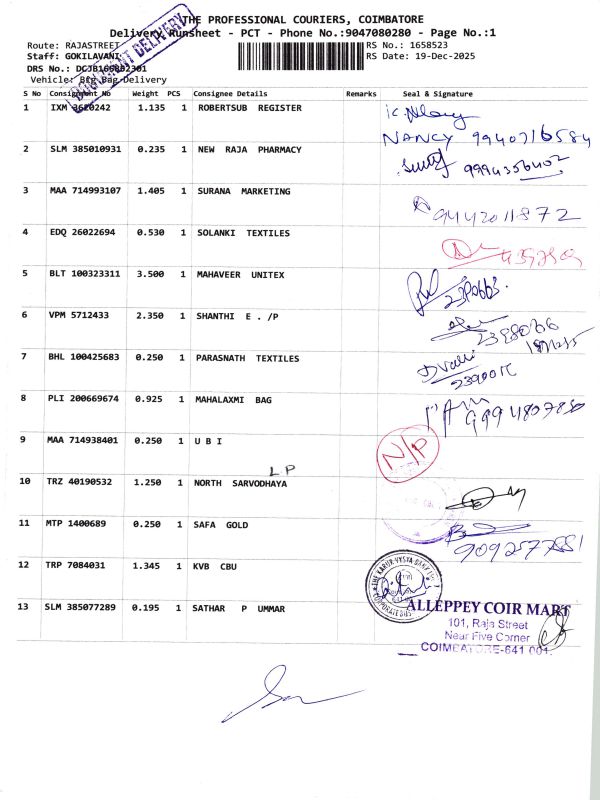 THE PROFESSIONAL COURIERS, COIMBATORE
Delivery Runsheet - PCT - Phone No.:9047080280 - Page No.:1
Route: RAJASTREET
RS No.: 1658523
Staff: GOKILAVANI
RS Date: 19-Dec-2025
DRS No.:
Vehicle: Big Bag Delivery
DELIVERY
S No Consignment No Weight PCS Consignee Details Remarks Seal & Signature
1 IXM 3620242 1.135 1 ROBERTSUB REGISTER
NANCY 9940716584
2 SLM 385010931 0.235 1 NEW RAJA PHARMACY
9994356402
3 MAA 714993107 1.405 1 SURANA MARKETING
9442011872
4 EDQ 26022694 0.530 1 SOLANKI TEXTILES
5 BLT 100323311 3.500 1 MAHAVEER UNITEX
6 VPM 5712433 2.350 1 SHANTHI E . /P
7 BHL 100425683 0.250 1 PARASNATH TEXTILES
8 PLI 200669674 0.925 1 MAHALAXMI BAG
9994807850
9 MAA 714938401 0.250 1 U B I
N/P
L P
10 TRZ 40190532 1.250 1 NORTH SARVODHAYA
11 MTP 1400689 0.250 1 SAFA GOLD
12 TRP 7084031 1.345 1 KVB CBU
THE KARUR VYSYA BANK
13 SLM 385077289 0.195 1 SATHAR P UMMAR
ALLEPPEY COIR MART
101, Raja Street
Near Five Corner
COIMBATORE-641 001.